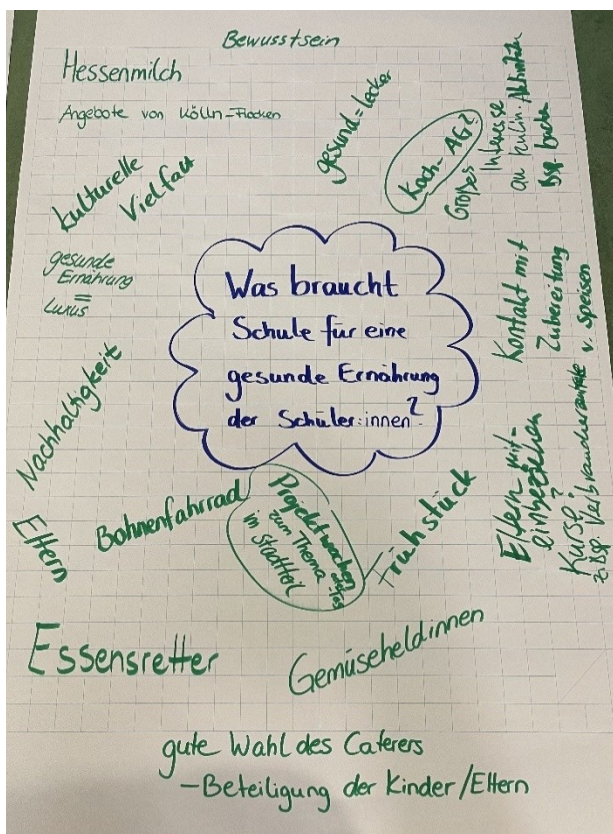 Bewusstsein
Hessenmilch
Angebote von Kölln-Flocken
gesund = lecker
Koch-AG?
Großes
Interesse
an kulin.
Bsp. backen
kulturelle
Vielfalt
gesunde
Ernährung
=
Luxus
Was braucht
Schule für eine
gesunde Ernährung
der Schüler:innen?
Kontakt mit
Zubereitung
v. Speisen
Nachhaltigkeit
Eltern
Bohnenfahrrad
Projektwochen
zum Thema
im Stadtteil
Frühstück
Eltern mit-
einbeziehen
Kurse?
z.Bsp. Verbraucherzentrale
Essensretter
Gemüseheldinnen
gute Wahl des Caterers
- Beteiligung der Kinder/Eltern